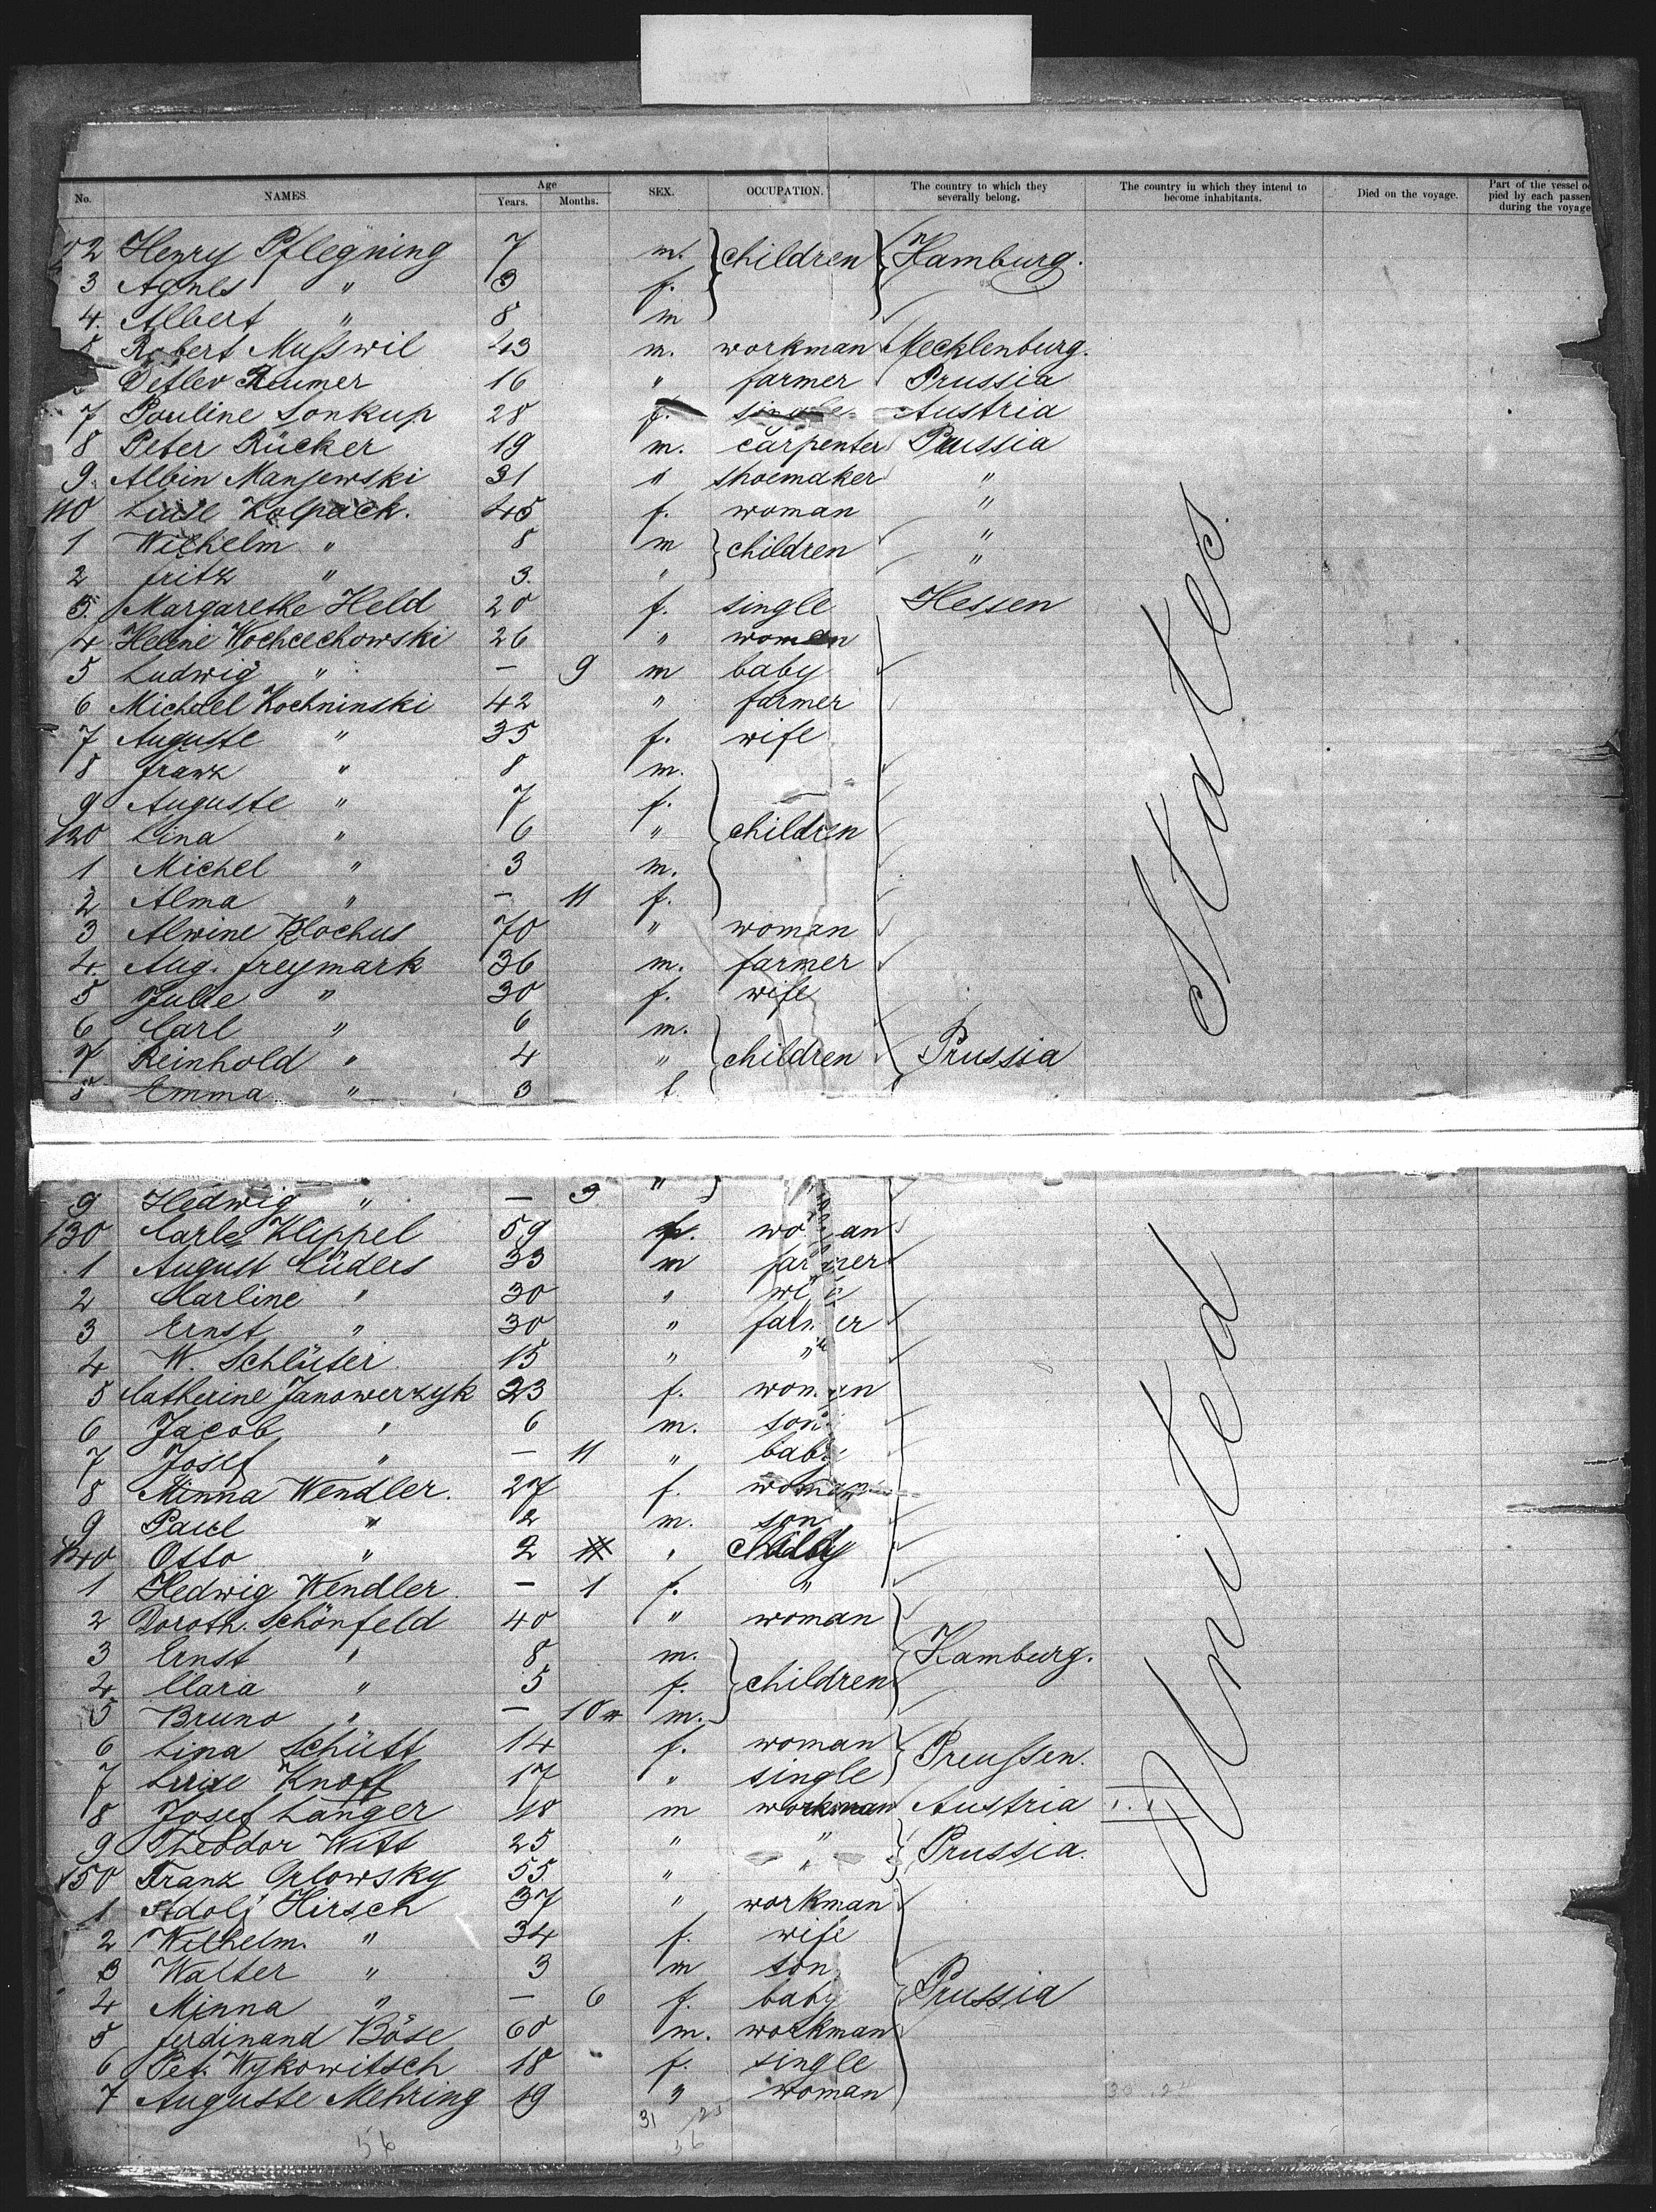 No. NAMES. Age Years. Months. SEX. OCCUPATION. The country to which they severally belong. The country in which they intend to become inhabitants. Died on the voyage. Part of the vessel pied by each passen during the voyage
2 Henry Pflegning 7 m. children Hamburg.
3 Agnes " 3 f.
4. Albert " 8 m
Robert Mußwil 43 m. workman Mecklenburg.
Detlev 16 " farmer Prussia
7 Pauline Sonkup 28 f. single Austria
8 Peter Rücker 19 m. carpenter Prussia
9. Albin Manjewski 31 " shoemaker "
110 Luise Kolpack. 45 f. woman "
1 Wilhelm " 8 m children "
2 Fritz " 3. " "
3. Margarethe Held 20 f. single Hessen
4 Helene Wochcechowski 26 " woman
5 Ludwig " — 9 m baby
6 Michael Kochninski 42 " farmer
7 Auguste " 35 f. wife
8 Franz " 8 m.
9 Auguste " 7 f.
120 Lina " 6 " children
1 Michel " 3 m.
2 Alma " — 11 f.
3 Alwine Blochus 70 " woman
4. Aug. Freymark 36 m. farmer
5 Julie " 30 f. wife
6 Carl " 6 m.
7 Reinhold " 4 " children Prussia
8 Emma " 3 f
9 Hedwig " — 3 "
130 Carle Klippel 59 f. woman
1 August Lüders 33 m farmer
2 Carline " 30 " wife
3 Ernst " 30 " farmer
4 W. Schlüter 15 " "
5 Catherine Janowerzyk 23 f. woman
6 Jacob " 6 m. son
7 Josef " — 11 " baby
8 Minna Wendler. 27 f. woman
9 Paul " 2 m. son
140 Otto " 2 "
1 Hedwig Wendler — 1 f. "
2 Doroth. Schönfeld 40 " woman
3 Ernst " 8 m. Hamburg.
4. Clara " 5 f. children
5 Bruno " — 10 m.
6 Lina Schütt 14 f. woman Preußen.
7 Luise Knoff 17 " single
8 Josef Langer 18 m workman Austria
9 Theodor Witt 25 " " Prussia.
150 Franz Orlowsky 55 " "
1 Adolf Hirsch 37 " workman
2 Wilhelm. " 34 f. wife
3 Walter " 3 m son
4 Minna " — 6 f. baby Prussia
5 Ferdinand Böse 60 m. workman
6 Pet. Wykowitsch 18 f. single
7 Auguste Mehring 19 " woman
31 25
56 56
United States.